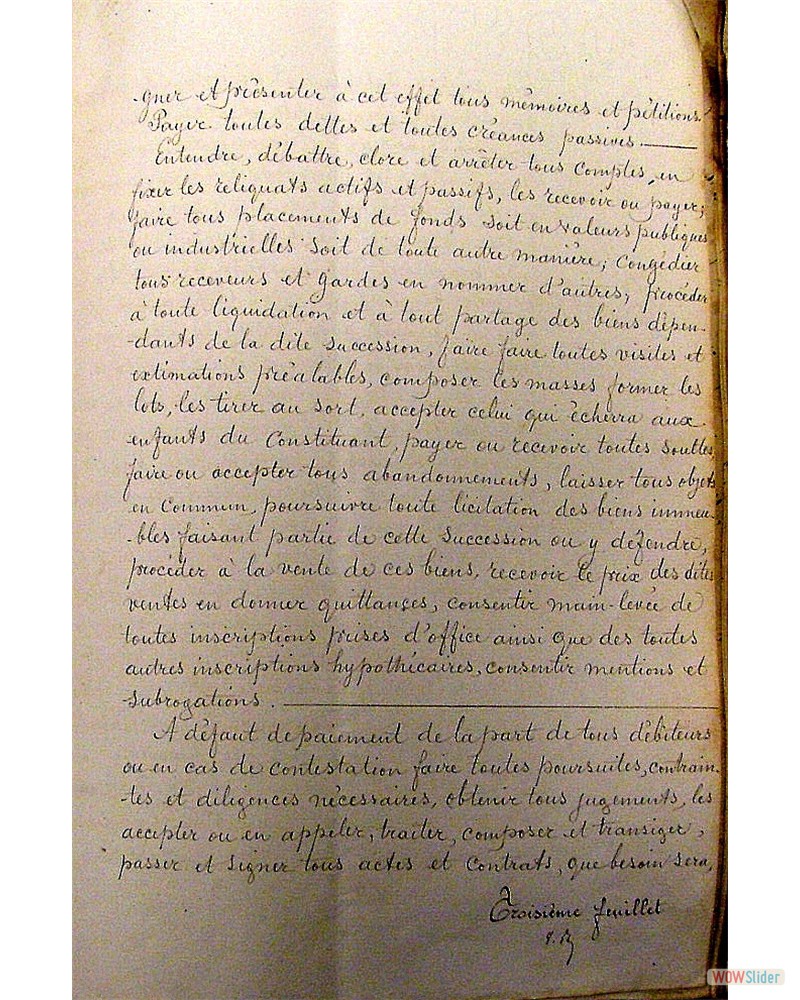 -gner et présenter à cet effet tous mémoires et pétitions.
Payer toutes dettes et toutes créances passives.
Entendre, débattre, clore et arrêter tous comptes, en
fixer les reliquats actifs et passifs, les recevoir ou payer;
faire tous placements de fonds soit en valeurs publiques
ou industrielles soit de toute autre manière; Congédier
tous receveurs et gardes en nommer d'autres; procéder
à toute liquidation et à tout partage des biens dépen-
-dants de la dite succession, faire faire toutes visites et
extimations préalables, composer les masses former les
lots, les tirer au sort, accepter celui qui écherra aux
enfants du Constituant, payer ou recevoir toutes soultes
faire ou accepter tous abandonnements, laisser tous objets
en commun, poursuivre toute licitation des biens immeu-
-bles faisant partie de cette succession ou y défendre,
procéder à la vente de ces biens, recevoir le prix des dites
ventes en donner quittances, consentir main-levée de
toutes inscriptions prises d'office ainsi que des toutes
autres inscriptions hypothécaires, consentir mentions et
-subrogations.
A défaut de paiement de la part de tous débiteurs
ou en cas de contestation faire toutes poursuites, contrain-
-tes et diligences nécessaires, obtenir tous jugements, les
accepter ou en appeler, traiter, composer et transiger,
passer et signer tous actes et contrats, que besoin sera,
Troisième feuillet
WOWSlider